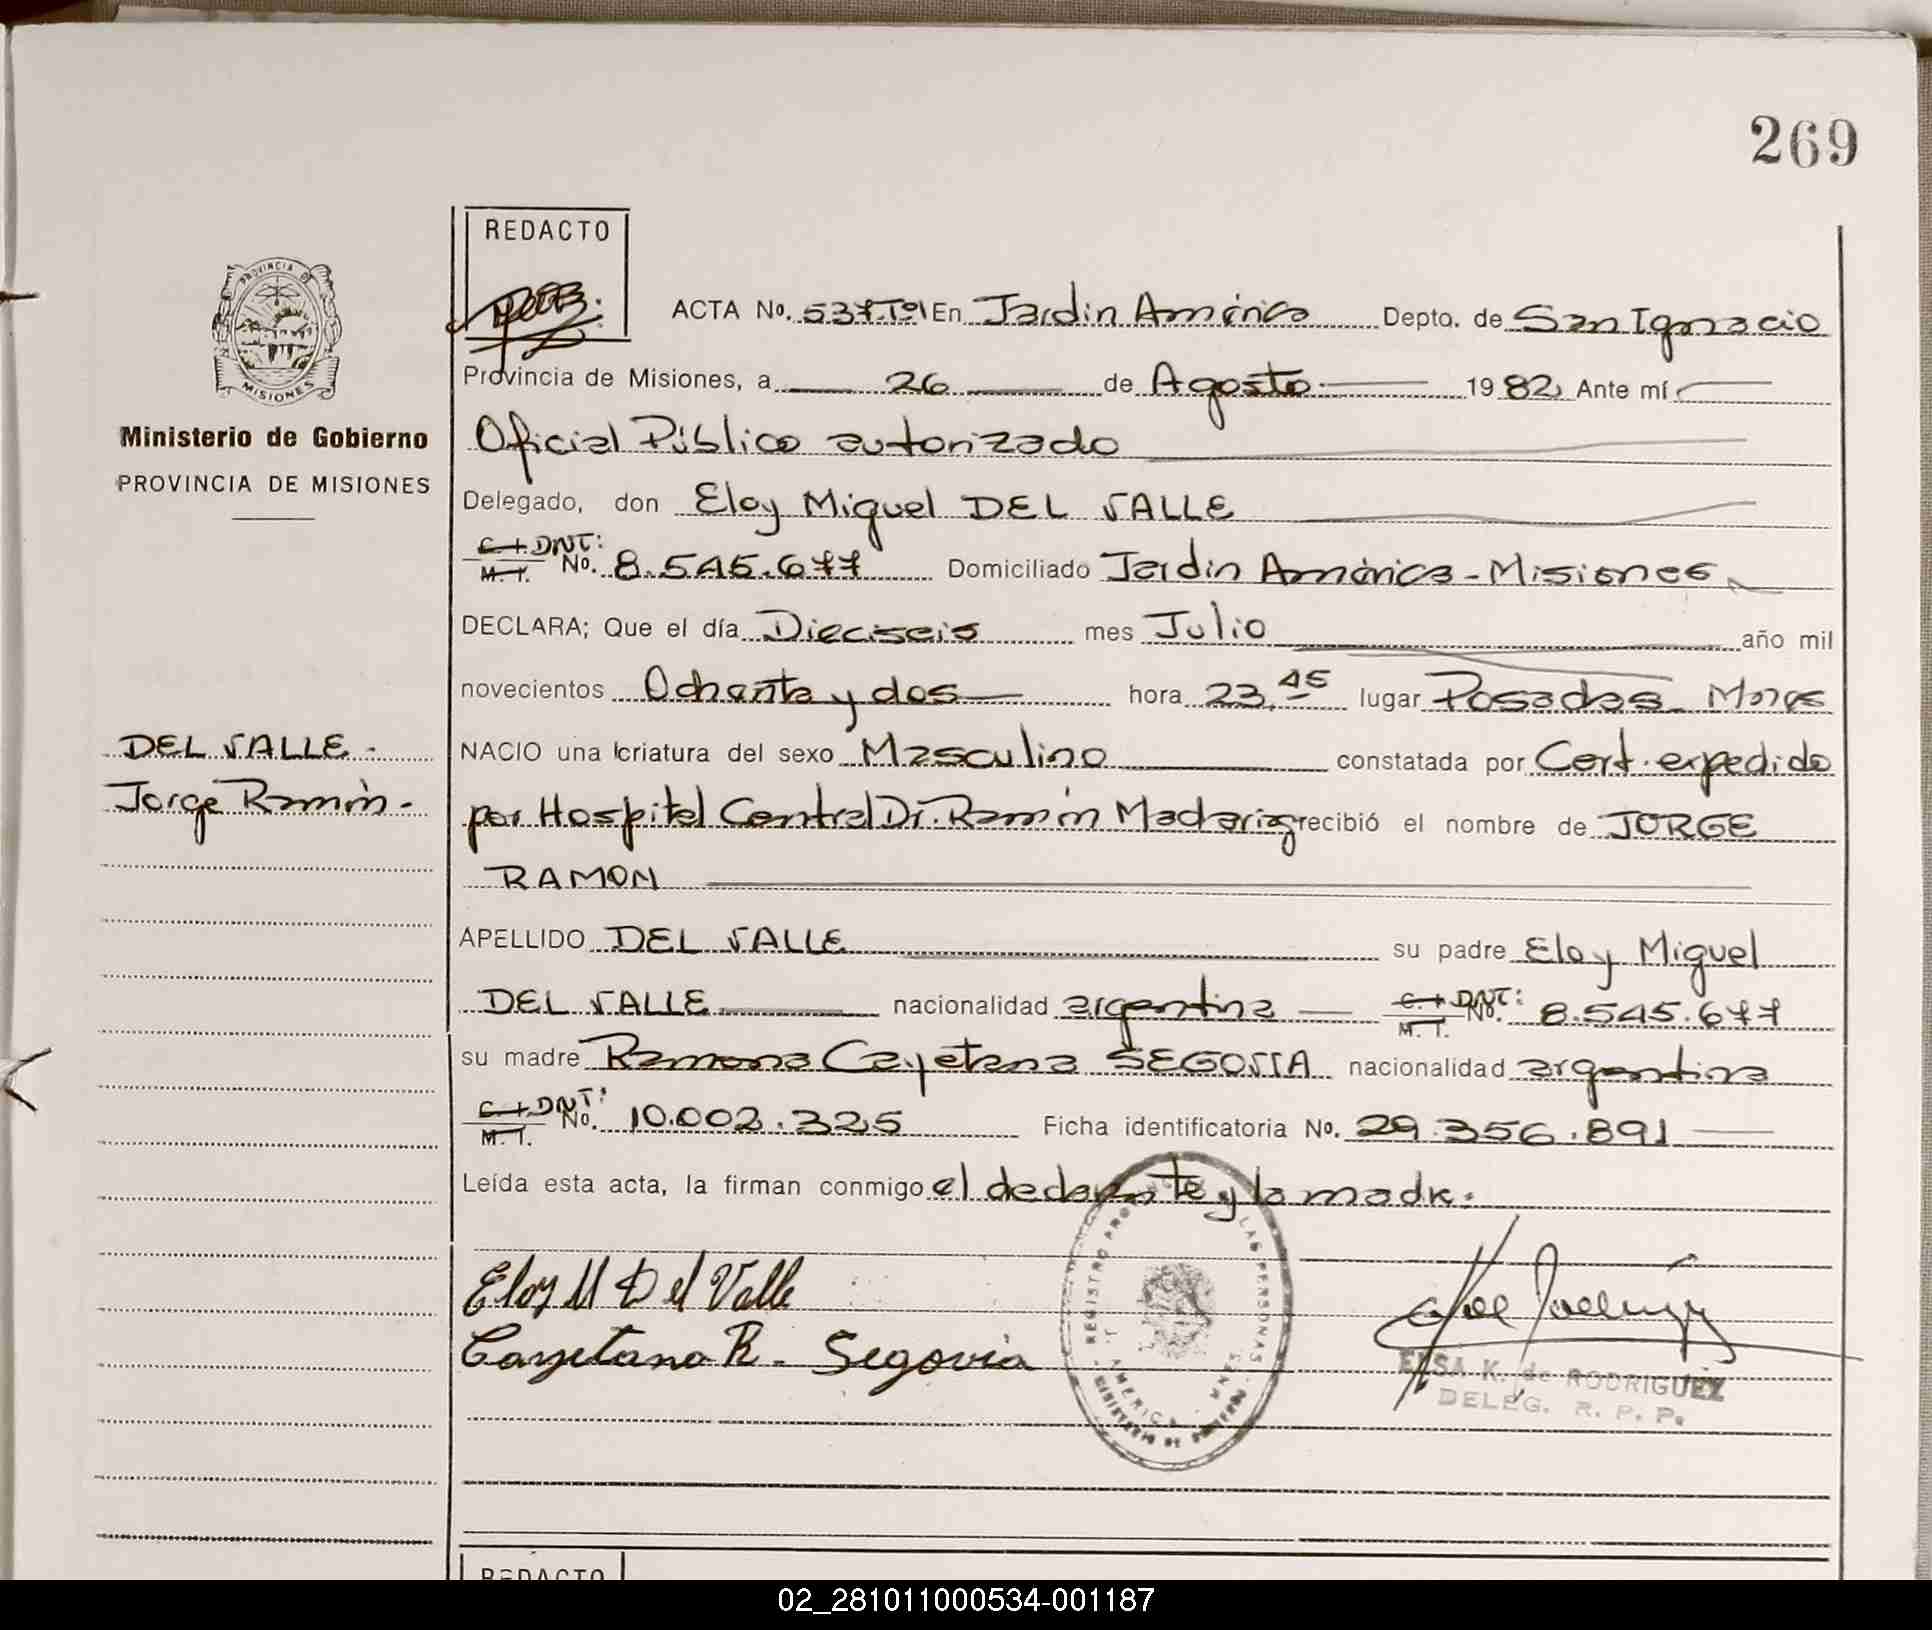 269
REDACTO
PROVINCIA DE
MISIONES
Ministerio de Gobierno
PROVINCIA DE MISIONES
ACTA No. 537.Tº1 En Jardin América Depto. de San Ignacio
Provincia de Misiones, a 26 de Agosto 1982 Ante mí
Oficial Público autorizado
Delegado, don Eloy Miguel DEL VALLE
C. I. DNI:
M. I. No. 8.545.677 Domiciliado Jardin América - Misiones
DECLARA; Que el día Dieciseis mes Julio año mil
novecientos Ochenta y dos hora 23,45 lugar Posadas Mnes
DEL VALLE -
Jorge Ramón -
NACIO una criatura del sexo Masculino constatada por Cert. expedido
por Hospital Central Dr. Ramón Madariaga recibió el nombre de JORGE
RAMON
APELLIDO DEL VALLE su padre Eloy Miguel
DEL VALLE nacionalidad argentina C. I. DNI: M. I. No. 8.545.677
su madre Ramona Cayetana SEGOVIA nacionalidad argentina
C. I. DNI:
M. I. No. 10.002.325 Ficha identificatoria No. 29.356.891
Leída esta acta, la firman conmigo el declarante y la madre.
Eloy M Del Valle
Cayetana R. Segovia
REGISTRO LAS PERSONAS
AMERICA
ELSA K. de RODRIGUEZ
DELEG. R. P. P.
REDACTO
02_281011000534-001187